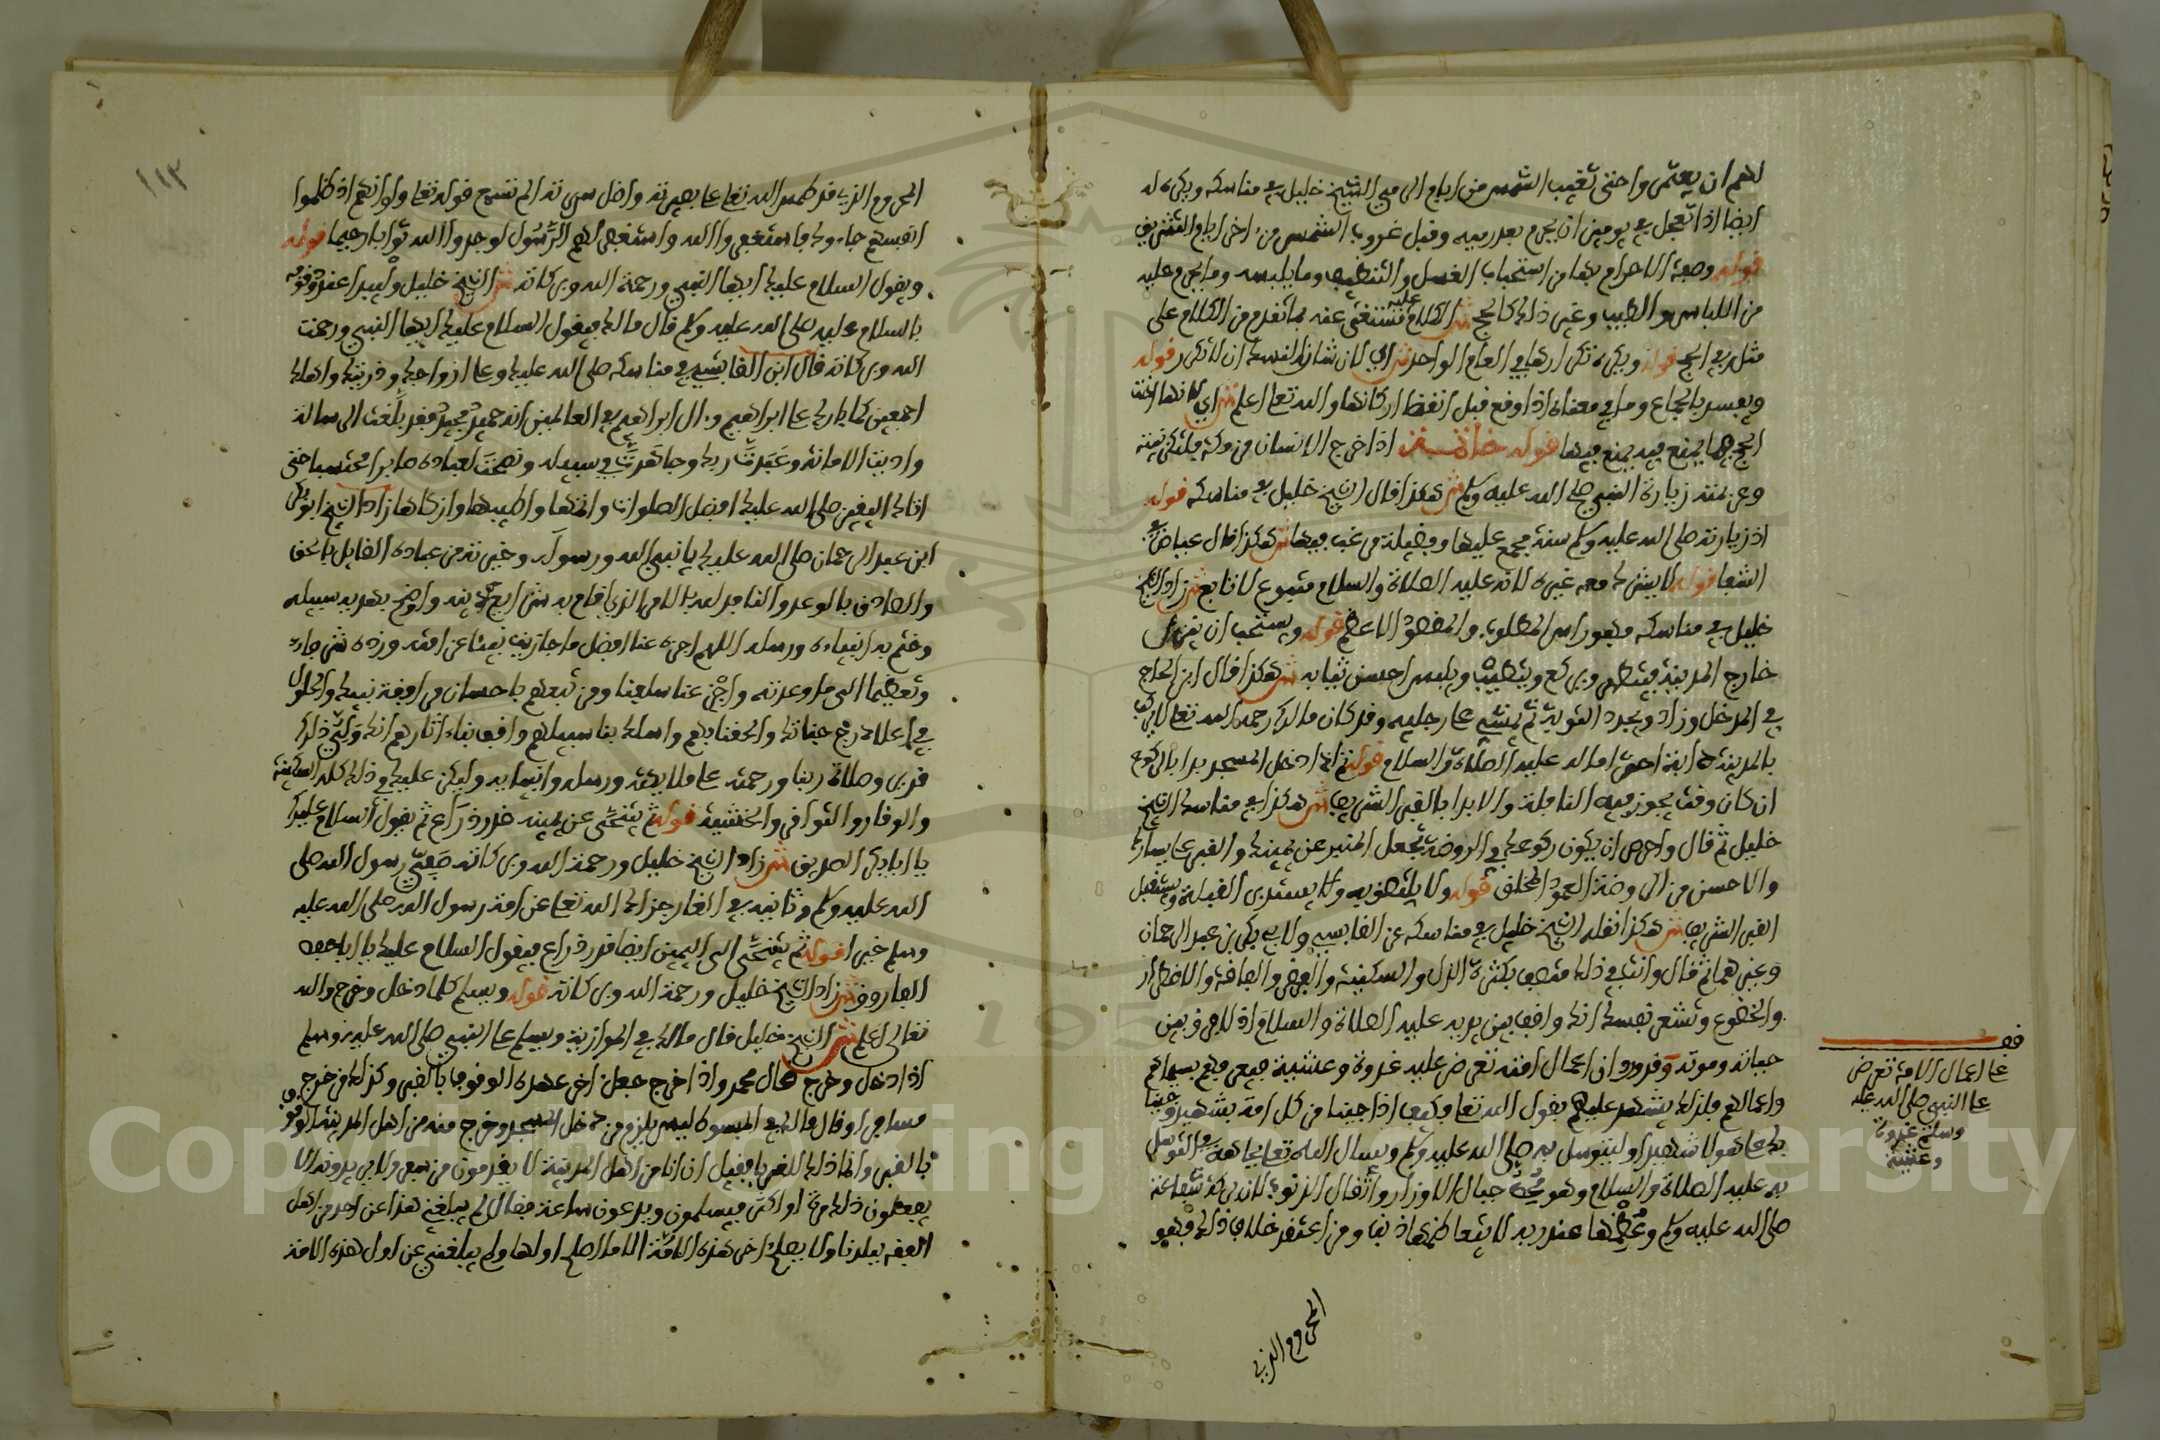 لهم ان يعتمروا حتى تغيب الشمس من ايام الرمي الشيخ خليل في مناسكه ويكره له
ايضا اذا تعجل في يومين ان يحرم بعد رميه وقبل غروب الشمس من اخر ايام التشريق
قوله وصفة الاحرام بها من استحباب الغسل والتنظيف وما يلبسه وما يحرم عليه
من اللباس والطيب وغير ذلك كالحج ش الكلام عليه تستغني عنه بما تقدم من الكلام على
مثله في الحج قوله ويكره تكرارها في العام الواحد ش اي لان شانه لنفسك ان لا تكرر قوله
ويفسد بالجماع وما في معناه اذا وقع قبل انقضا اركانها والله تعالى اعلم ش اي لانها اخت
الحج فما يمنع فيه يمنع فيها قوله خاتمة اذا خرج الانسان من مكة فلتكن نيته
وعزيمته زيارة النبي صلى الله عليه وسلم ش هكذا قال الشيخ خليل في مناسكه قوله
اذ زيارته صلى الله عليه وسلم سنة مجمع عليها وفضيلة مرغب فيها ش هكذا قال عياض في
الشفا قوله لا يشرك معه غيره لانه عليه الصلاة والسلام متبوع لا تابع ش زاد الشيخ
خليل في مناسكه فهو راس المطلوب والمقصود الاعظم قوله ويستحب ان ينزل
خارج المدينة فيتطهر ويركع ويتطيب ويلبس احسن ثيابه ش هكذا قال ابن الحاج
في المدخل وزاد ويجدد التوبة ثم يمشي على رجليه وقد كان مالك رحمه الله تعالى لا يركب
بالمدينة دابة احتراما له عليه الصلاة والسلام قوله ثم اذا دخل المسجد بدا بالركوع
ان كان وقت يجوز فيه النافلة والا بدا بالقبر الشريف ش هكذا في مناسك الشيخ
خليل ثم قال واحرص ان يكون ركوعك في الروضة تجعل المنبر عن يمينك والقبر على يسارك
والاحسن من الروضة العمود المخلق قوله ولا يلتصق به ولا يستدبر القبلة ويستقبل
القبر الشريف ش هكذا نقله الشيخ خليل في مناسكه عن القابسي ولابي بكر بن عبد الرحمان
وغيرهما ثم قال وانت في ذلك متصف بكثرة الذل والسكينة والفقر والفاقة والاضطرار
والخضوع وتشعر نفسك انك واقف بين يديه عليه الصلاة والسلام اذ لا فرق بين
حياته وموته وقد ورد ان اعمال امته تعرض عليه غدوة وعشية فيعرفهم بسيماهم
واعمالهم فلذلك يشهد عليهم يقول الله تعالى وكيف اذا جينا من كل امة بشهيد وجينا
بك على هؤلاء شهيدا وليتوسل به صلى الله عليه وسلم ويسال الله تعالى بجاهه في التوسل
به عليه الصلاة والسلام وهو محط جبال الاوزار واثقال الذنوب لان بركة شفاعته
صلى الله عليه وسلم وعظمها عند ربه لا يتعاظمها ذنب ومن اعتقد خلاف ذلك فهو
المحروم الذي
قف
على اعمال الامة تعرض
على النبي صلى الله عليه
وسلم غدوة
وعشية
١١٣
المحروم الذي قد طمس الله تعالى على بصيرته واضل سريرته الم تسمع قوله تعالى ولو انهم اذ ظلموا
انفسهم جاءوك فاستغفروا الله واستغفر لهم الرسول لوجدوا الله توابا رحيما قوله
ويقول السلام عليك ايها النبي ورحمة الله وبركاته ش الشيخ خليل وليبدا عند وقوفه
بالسلام عليه صلى الله عليه وسلم قال مالك فيقول السلام عليك ايها النبي ورحمت
الله وبركاته قال ابن القابسي في مناسكه صلى الله عليك وعلى ازواجك وذريتك واهلك
اجمعين كما بارك على ابراهيم وال ابراهيم في العالمين انه حميد مجيد فقد بلغت الرسالة
واديت الامانة وعبدت ربك وجاهدت في سبيله ونصحت لعباده صابرا محتسبا حتى
اتاك اليقين صلى الله عليك افضل الصلوات واتمها واطيبها وازكاها زاد الشيخ ابو بكر
ابن عبد الرحمان صلى الله عليك يا نبي الله ورسوله وخيرته من عباده القايل بالحق
والصادق بالوعد والقايم لله بالامر الذي اقام به شرايع دينه واوضح به سبيله
وختم به انبياءه ورسله اللهم اجزه عنا افضل ما جازيت نبيا عن امته وزده شرفا
وتعظيما الى ما وعدته واجز عنا سلفنا ومن تبعهم باحسان مرافقة نبيك والحلول
في اعلا درج جناتك والحقنا بهم واسلك بنا سبيلهم واقف بنا اثارهم انك ولي ذلك
قريب وصلاة ربنا ورحمته على ملايكته ورسله وانبيايه وليكن عليك في ذلك كله السكينة
والوقار والتواضع والخشية قوله ثم يتنحى عن يمينه قدر ذراع ثم يقول السلام عليك
يا ابا بكر الصديق ش زاد الشيخ خليل ورحمة الله وبركاته صفي رسول الله صلى
الله عليه وسلم وثانيه في الغار جزاك الله تعالى عن امة رسول الله صلى الله عليه
وسلم خيرا قوله ثم يتنحى الى اليمين ايضا قدر ذراع فيقول السلام عليك يا ابا حفص
الفاروق ش زاد الشيخ خليل ورحمة الله وبركاته قوله ويسلم كلما دخل وخرج والله
تعالى اعلم ش الشيخ خليل قال مالك في الموازية ويسلم على النبي صلى الله عليه وسلم
اذا دخل وخرج قال محمد واذا خرج جعل اخر عهده الوقوف بالقبر وكذلك من خرج
مسافرا وقال مالك في المبسوط ليس يلزم من دخل المسجد وخرج منه من اهل المدينة الوقوف
بالقبر وانما ذلك للغربا فقيل ان اناسا من اهل المدينة لا يقدمون من سفر ولا يريدونه الا
يفعلون ذلك مرة او اكثر فيسلمون ويدعون ساعة فقال لم يبلغني هذا عن احد من اهل
الفقه ببلدنا ولا يصلح اخر هذه الامة الا ما اصلح اولها ولم يبلغني عن اول هذه الامة